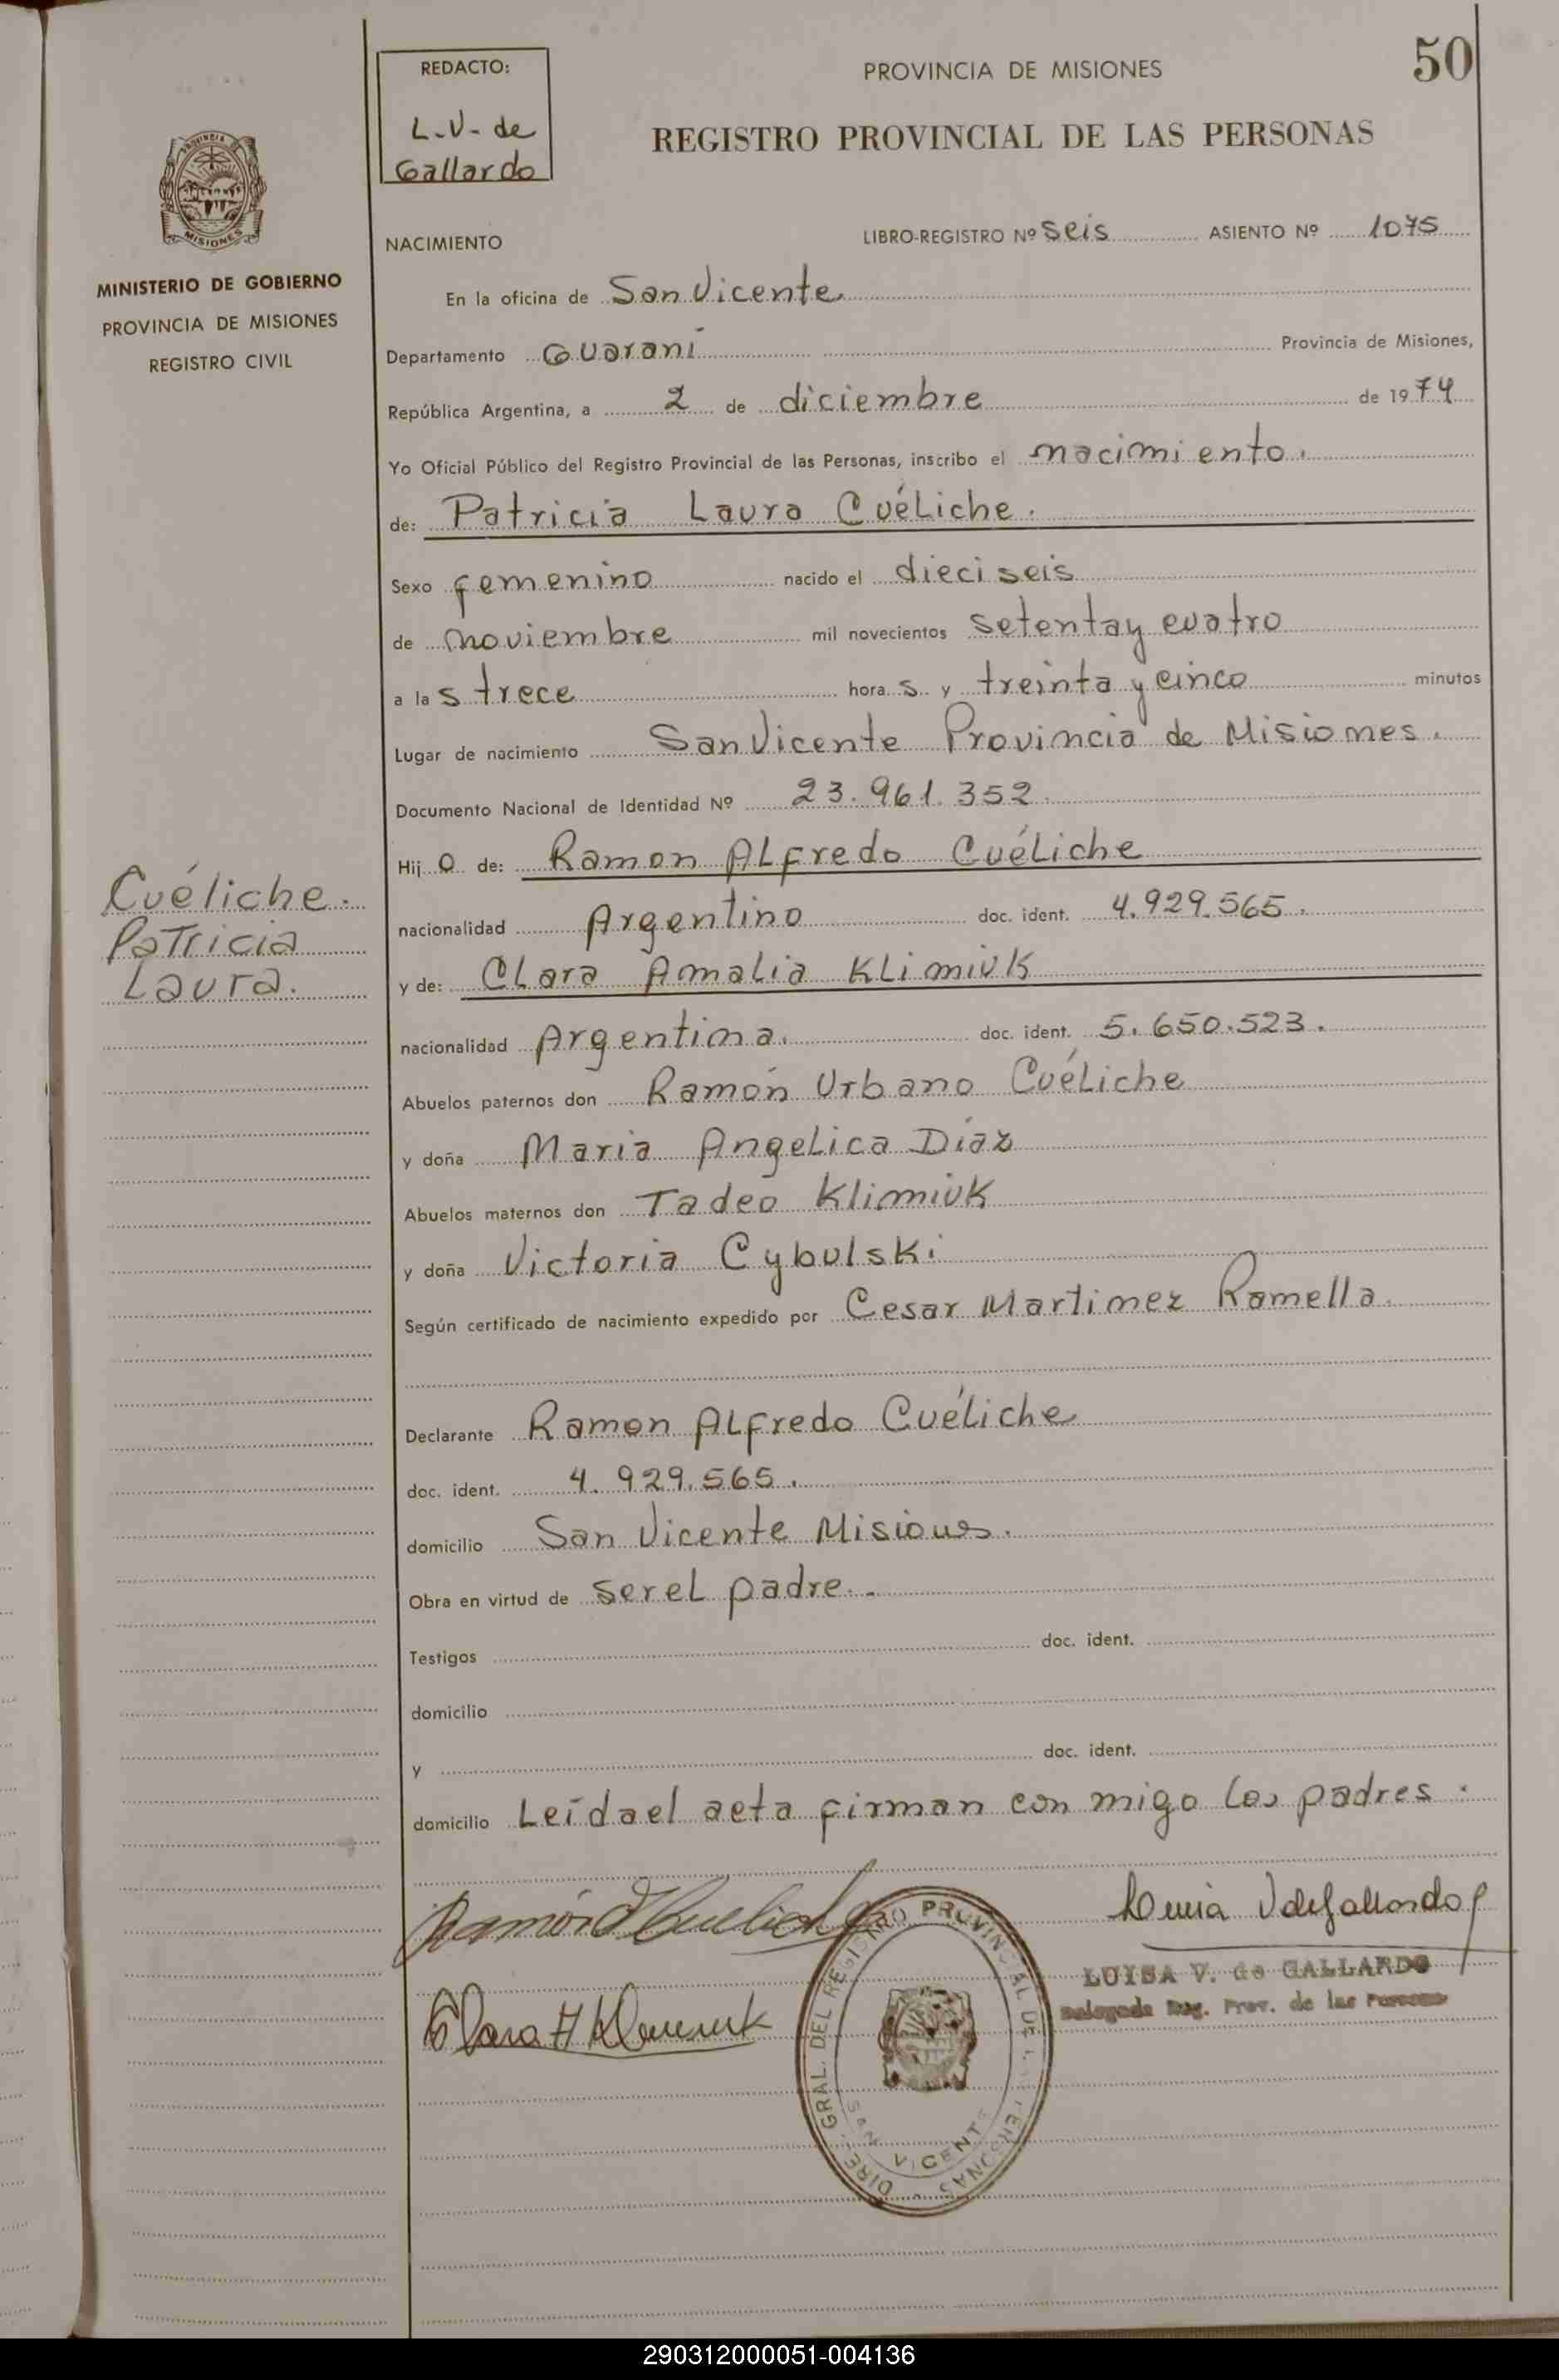 50
REDACTO:
L.V. de
Gallardo
PROVINCIA DE MISIONES
REGISTRO PROVINCIAL DE LAS PERSONAS
PROVINCIA DE
MISIONES
MINISTERIO DE GOBIERNO
PROVINCIA DE MISIONES
REGISTRO CIVIL
NACIMIENTO LIBRO-REGISTRO Nº seis ASIENTO Nº 1075
En la oficina de San Vicente.
Departamento Guaraní Provincia de Misiones,
República Argentina, a 2 de diciembre de 1974
Yo Oficial Público del Registro Provincial de las Personas, inscribo el nacimiento.
de: Patricia Laura Cuéliche.
Sexo femenino nacido el dieciseis
de noviembre mil novecientos setenta y cuatro
a las trece horas y treinta y cinco minutos
Lugar de nacimiento San Vicente Provincia de Misiones.
Documento Nacional de Identidad Nº 23.961.352.
Hijo de: Ramon Alfredo Cuéliche
nacionalidad Argentino doc. ident. 4.929.565.
y de: Clara Amalia Klimiuk
nacionalidad Argentina. doc. ident. 5.650.523.
Abuelos paternos don Ramón Urbano Cuéliche
y doña Maria Angelica Díaz
Abuelos maternos don Tadeo Klimiuk
y doña Victoria Cybulski
Según certificado de nacimiento expedido por Cesar Martinez Ramella.
Declarante Ramon Alfredo Cuéliche
doc. ident. 4.929.565.
domicilio San Vicente Misiones.
Obra en virtud de ser el padre..
Testigos doc. ident.
domicilio
y doc. ident.
domicilio Leída el acta firman con migo los padres.
Cuéliche.
Patricia
Laura.
Ramón A Cueliche
Clara A Klimiuk
DIRE. GRAL. DEL REGISTRO PROVINCIAL DE PERSONAS
SAN VICENTE
Luisa V de Gallardo
LUISA V. de GALLARDO
Delegada Reg. Prov. de las Personas
290312000051-004136